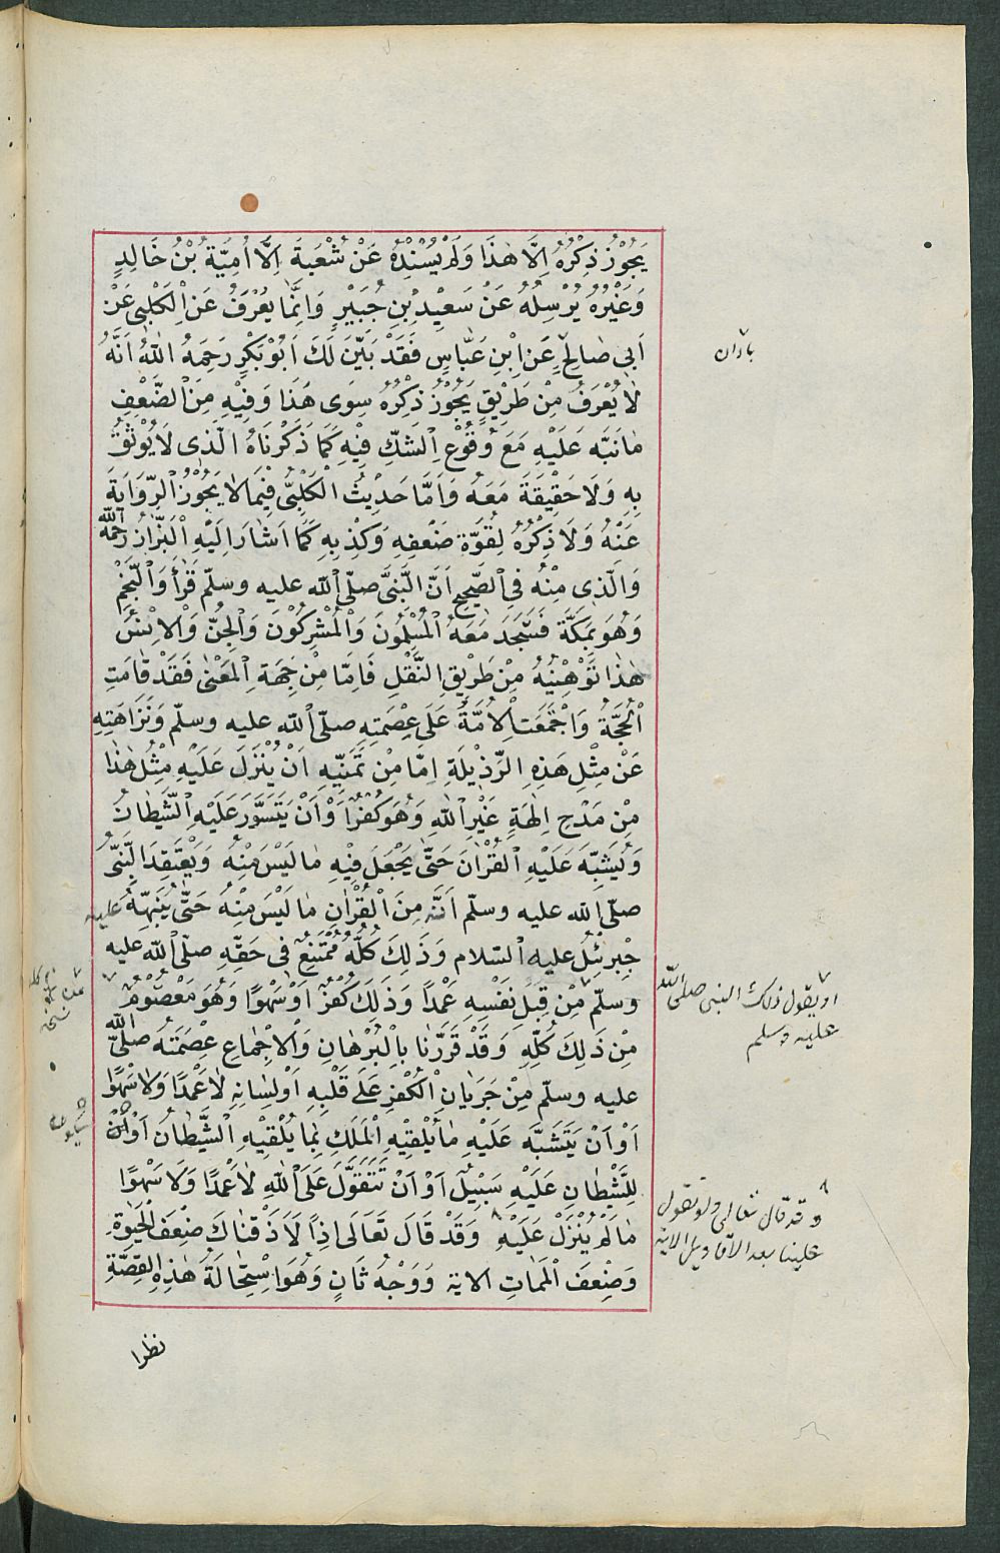 يَجُوْزُ ذِكْرُهُ اِلَّا هٰذَا وَلَمْ يُسْنِدْهُ عَنْ شُعْبَةَ اِلَّا اُمَيَّةُ بْنُ خَالِدٍ
وَغَيْرُهُ يُرْسِلُهُ عَنْ سَعِيْدِ بْنِ جُبَيْرٍ وَاِنَّمَا يُعْرَفُ عَنِ الْكَلْبِى عَنْ
اَبِى صَالِحٍ عَنِ ابْنِ عَبَّاسٍ فَقَدْ بَيَّنَ لَكَ اَبُوْ بَكْرٍ رَحِمَهُ اللّٰهُ اَنَّهُ
لَا يُعْرَفُ مِنْ طَرِيْقٍ يَجُوْزُ ذِكْرُهُ سِوَى هَذَا وَفِيْهِ مِنَ الضَّعْفِ
مَا نَبَّهَ عَلَيْهِ مَعَ وُقُوْعِ الشَّكِّ فِيْهِ كَمَا ذَكَرْنَاهُ الَّذِى لَا يُوْثَقُ
بِهِ وَلَا حَقِيْقَةَ مَعَهُ وَاَمَّا حَدِيْثُ الْكَلْبِىِّ فِيْمَا لَا يَجُوْزُ الرِّوَايَةُ
عَنْهُ وَلَا ذِكْرُهُ لِقُوَّةِ ضَعْفِهِ وَكَذِبِهِ كَمَا اَشَارَ اِلَيْهِ الْبَزَّازُ رحمه الله
وَالَّذِى مِنْهُ فِى الصَّحِيْحِ اَنَّ النَّبِىَّ صلّى الله عليه وسلّم قَرَأَ وَالنَّجْمِ
وَهُوَ بِمَكَّةَ فَسَجَدَ مَعَهُ الْمُسْلِمُونَ وَالْمُشْرِكُوْنَ وَالْجِنُّ وَالْاِنْسُ
هٰذَا تَوْهِيْنُهُ مِنْ طَرِيْقِ النَّقْلِ فَاَمَّا مِنْ جِهَةِ الْمَعْنٰى فَقَدْ قَامَتِ
الْحُجَّةُ وَاجْتَمَعَتِ الْاُمَّةُ عَلَى عِصْمَتِهِ صلّى الله عليه وسلّم وَنَزَاهَتِهِ
عَنْ مِثْلِ هَذِهِ الرَّذِيْلَةِ اِمَّا مِنْ تَمَنِّيْهِ اَنْ يُنْزَلَ عَلَيْهِ مِثْلُ هٰذَا
مِنْ مَدْحِ اٰلِهَةٍ غَيْرِ اللّٰهِ وَهُوَ كُفْرٌ اَوْ اَنْ يَتَسَوَّرَ عَلَيْهِ الشَّيْطَانُ
وَيُشَبِّهَ عَلَيْهِ الْقُرْاٰنَ حَتَّى يَجْعَلَ فِيْهِ مَا لَيْسَ مِنْهُ وَيَعْتَقِدَ النَّبِىُّ
صلّى الله عليه وسلّم اَنَّ مِنَ الْقُرْاٰنِ مَا لَيْسَ مِنْهُ حَتّٰى يُنَبِّهَهُ عليه
جِبْرَئِيلُ عليه السلام وَذَلِكَ كُلُّهُ مُمْتَنِعٌ فى حَقِّهِ صلّى الله عليه
وسلّم مِنْ قِبَلِ نَفْسِهِ عَمْدًا وَذَلِكَ كُفْرٌ اَوْ سَهْوًا وَهُوَ مَعْصُوْمٌ
مِنْ ذَلِكَ كُلِّهِ وَقَدْ قَرَّرْنَا بِالْبُرْهَانِ وَالْاِجْمَاعِ عِصْمَتَهُ صلّى الله
عليه وسلّم مِنْ جَرَيَانِ الْكُفْرِ عَلَى قَلْبِهِ اَوْ لِسَانِهِ لَا عَمْدًا وَلَا سَهْوًا
اَوْ اَنْ يَتَشَبَّهَ عَلَيْهِ مَا يُلْقِيْهِ الْمَلَكُ بِمَا يُلْقِيْهِ الشَّيْطَانُ اَوْ اَنْ
لِلشَّيْطَانِ عَلَيْهِ سَبِيْلٌ اَوْ اَنْ تَتَقَوَّلَ عَلَى اللّٰهِ لَا عَمْدًا وَلَا سَهْوًا
مَا لَمْ يُنْزَلْ عَلَيْهِ وَقَدْ قَالَ تَعَالَى اِذًا لَاَذَقْنَاكَ ضِعْفَ الْحَيٰوةِ
وَضِعْفَ الْمَمَاتِ الاية وَوَجْهٌ ثَانٍ وَهُوَ اسْتِحَالَةُ هٰذِهِ الْقِصَّةِ
نظرا
باذان
او يقول ذلك النبى صلى الله
عليه وسلم
وقد قال تعالى ولو تقول
علينا بعد الاقاويل الاية
يكون